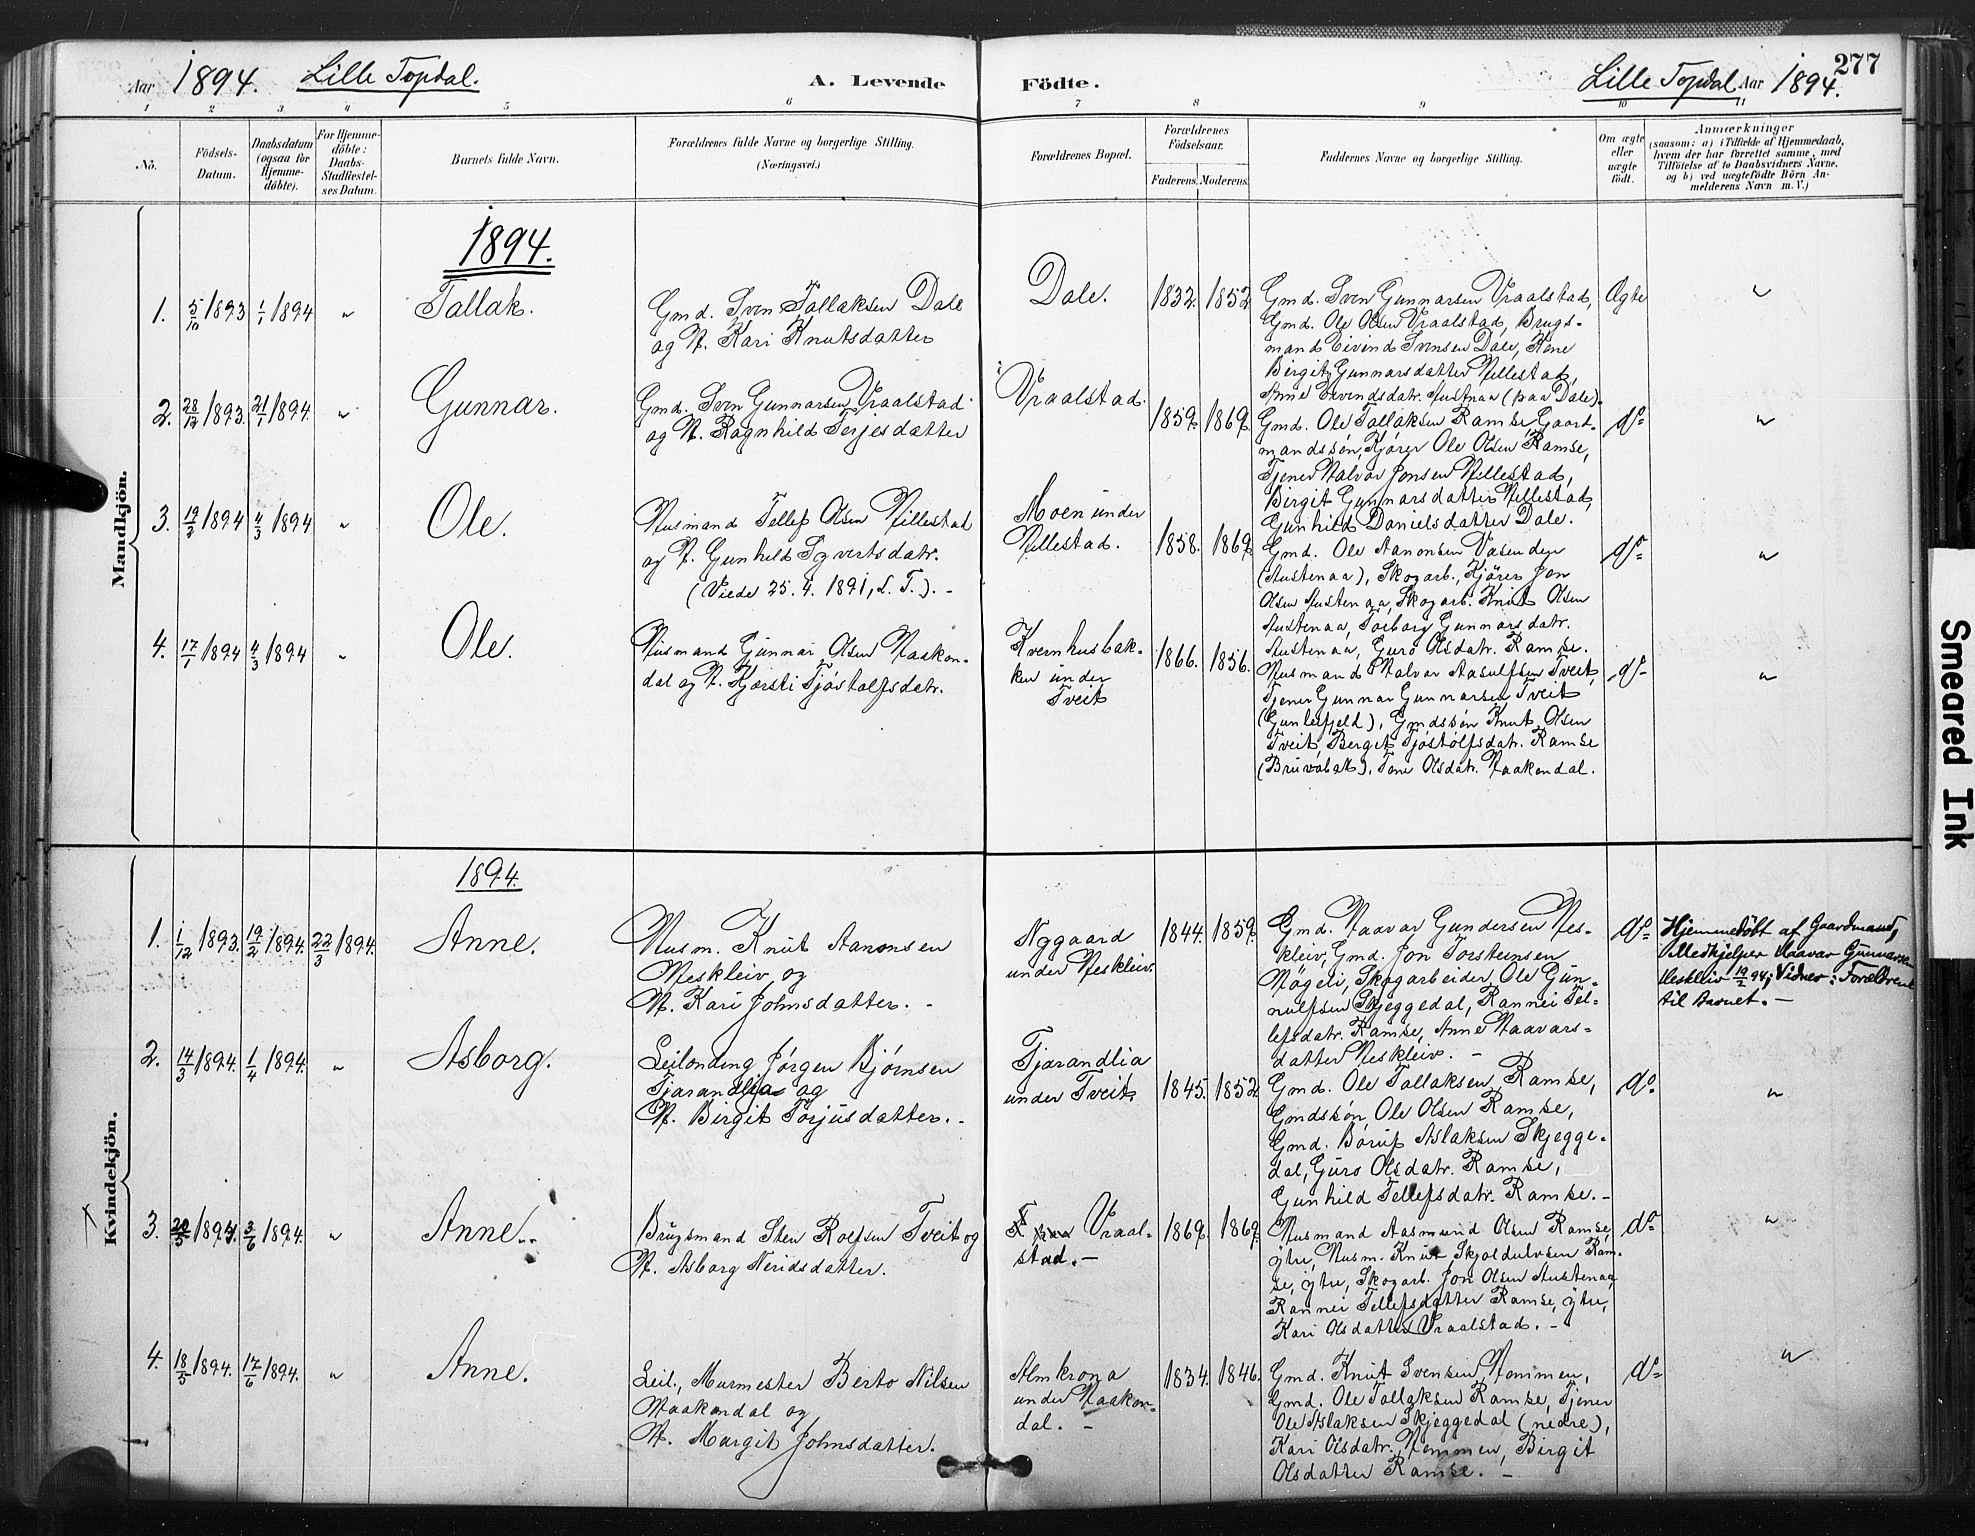 Aar 1894. Lille Topdal. A. Levende Födte. Lille Topdal. Aar 1894. 277
1 2 3 4 5 6 7 8 9 10 11
No.
Födsels-
Datum.
Daabsdatum
(ogsaa for
Hjemme-
döbte).
For Hjemme-
döbte:
Daabs-
Stadfæstel-
ses Datum.
Barnets fulde Navn.
Forældrenes fulde Navne og borgerlige Stilling.
(Næringsvei.)
Forældrenes Bopæl.
Forældrenes
Födselsaar.
Faderens. Moderens.
Faddernes Navne og borgerlig Stilling.
Om ægte
eller
uægte
födt.
Anmærkninger
(saasom: a) i Tilfælde af Hjemmedaab,
hvem der har forrettet samme, med
Tilföielse af to Daabsvidners Navne.
og b) ved uægtefödte Börn An-
melderens Navn m. V.)
Mandkjön.
1894.
1. 5/10 1893 1/1 1894 " Tallak.
Gmd. Sven Tallaksen Dale
og H. Kari Knutsdatter
Dale. 1832. 1852
Gmd. Sven Gunnarsen Vraalstad,
Gmd. Ole Olsen Vraalstad, Brugs-
mand Eivind Svensen Dale, Kone
Birgit Gunnarsdatter Hillestad,
Anne Eivindsdatr. Austnaa (paa Dale).
Ægte "
2. 28/12 1893. 21/1 1894. " Gunnar.
Gmd. Sven Gunnarsen Vraalstad
og H. Ragnhild Terjesdatter
Vraalstad. 1859. 1869.
Gmd. Ole Tallaksen Ramse, Gaard-
mandssøn, Kjører Ole Olsen Ramse,
Tjener Halvor Jonsen Hillestad,
Birgit Gunnarsdatter Hillestad,
Gunhild Danielsdatter Dale.
do "
3. 19/2 1894 4/3 1894 " Ole.
Husmand Tellef Olsen Hillestad
og H. Gunhild Syvertsdatr.
(Viede 25. 4. 1891, L. T.). -
Moen under
Hillestad. 1858. 1869
Gmd. Ole Aanonsen Vasenden
(Austenaa), Skogarb., Kjører Jon
Olsen Austenaa, Skogarb. Knut Olsen
Austenaa, Torborg Gunnarsdatr.
Austenaa, Guro Olsdatr. Ramse.
do "
4. 17/1 1894 4/3 1894 " Ole.
Husmand Gunnar Olsen Haakon-
dal og H. Kjersti Tjøstolfsdatr.
Kvernhusbak-
ken under
Tveit 1866. 1856.
Husmand Halvor Aasulfsen Tveit,
Tjener Gunnar Gunnarsen Tveit
(Gunleifjeld), Gmdssøn Knut Olsen
Tveit, Berget Tjøstolfsdatr. Ramse
(Bruvabak), Tone Olsdatr. Haakondal.
do "
Kvindekjön.
1894.
1. 1/12 1893. 19/2 1894. 22/3 1894. Anne.
Husm. Knut Aanonsen
Heskleiv og
H. Kari Johnsdatter. -
Nygaard
under Heskleiv. 1844. 1859.
Gmd. Haavar Gundersen Hes-
kleiv, Gmd. Jon Torsteinsen
Møgeli, Skogarbeider Ole Gun-
nulfsen Skjeggedal, Rannei Tel-
lefsdatr. Ramse, Anne Haavars-
datter Heskleiv. -
do
Hjemmedøbt af Gaardmand,
Medhjelper Haavar Gunnarsen
Heskleiv 19/2 94; Vidner: Forældrene
til Barnet. -
2. 14/3 1894. 1/4 1894. " Asborg.
Leilending Jørgen Bjørnsen
Tjarandlia og
H. Birgit Torjusdatter. -
Tjarandlia
under Tveit. 1845. 1852
Gmd. Ole Tallaksen Ramse,
Gmdssøn, Ole Olsen Ramse,
Gmd. Børuf Aslaksen Skjegge-
dal, Guro Olsdatr. Ramse,
Gunhild Tellefsdatr. Ramse. -
do. "
3. 20/5 1894. 3/6 1894. " Anne.
Brugsmand Sten Rolfsen Tveit og
H. Asborg Neridsdatter.
Vraal-
stad. - 1869. 1869.
Husmand Aasmund Olsen Ramse,
ytre, Husm. Knut Skjoldulvsen Ram-
se, ytre, Skogarb. Jon Olsen Austenaa,
Rannei Tellefsdatter Ramse, ytre,
Kari Olsdatter Vraalstad. -
do "
4. 18/5 1894. 17/6 1894. " Anne.
Leil., Murmester Berto Nilsen
Haakondal og
H. Margit Johnsdatter.
Almkrona
under Haakon-
dal. - 1834. 1846.
Gmd. Knut Svensen Hommen,
Gmd. Ole Tallaksen Ramse, Tjener
Ole Aslaksen Skjeggedal (nedre),
Kari Olsdatr. Hommen, Birgit
Olsdatter Ramse. -
do "
Smeared Ink